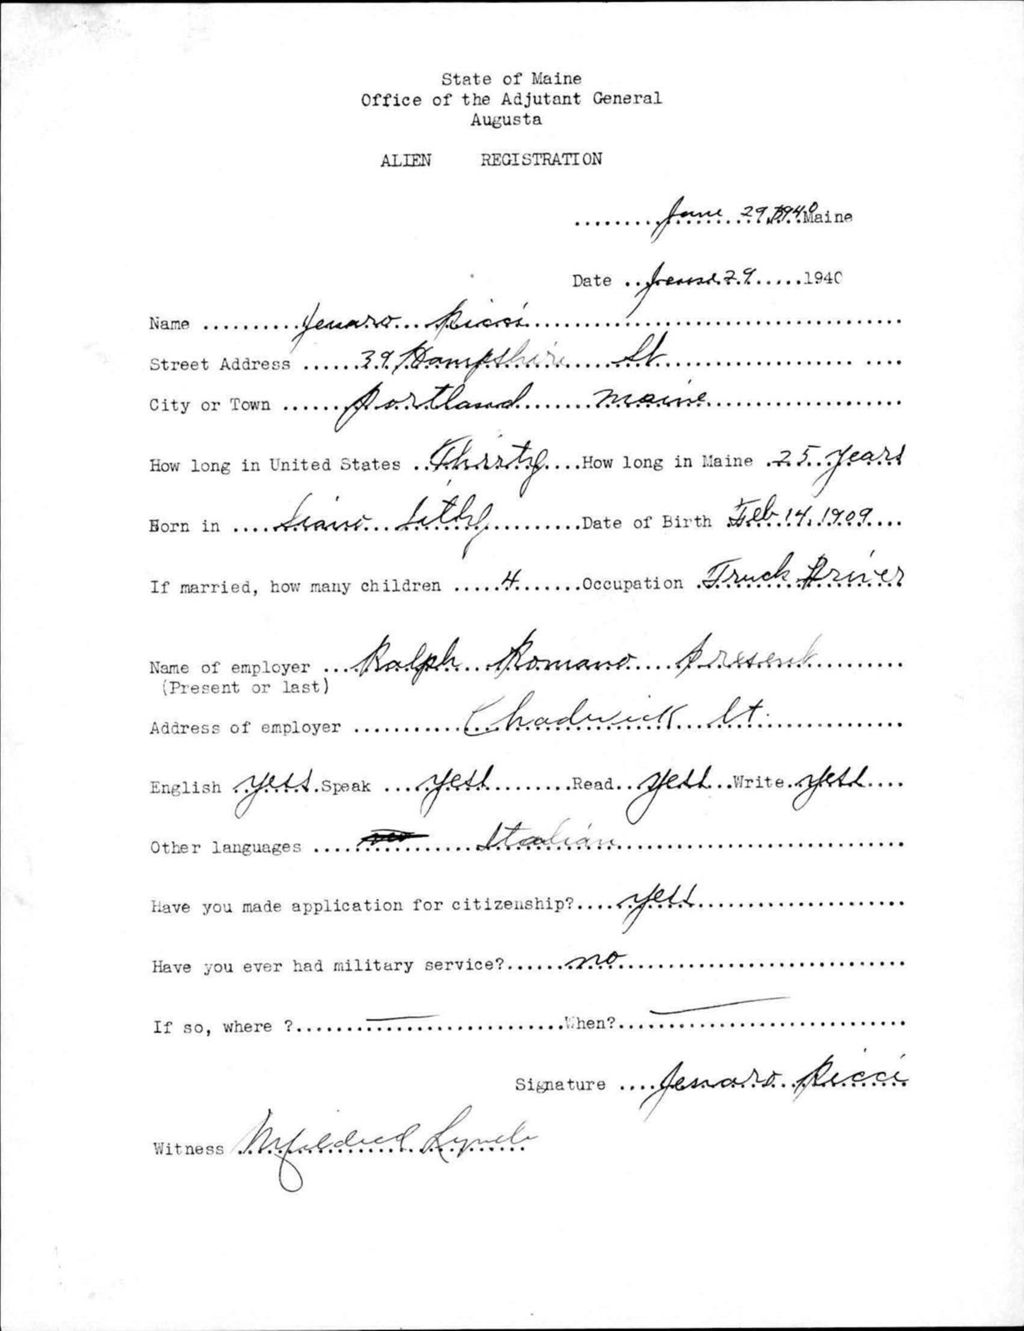 State of Maine
Office of the Adjutant General
Augusta
ALIEN REGISTRATION
.........June 29, 1940 Maine
Date ..June 29.....1940
Name ..........Jenaro...Ricci..............................
Street Address ......39 Hampshire....St..................... ....
City or Town ......Portland.......Maine....................
How long in United States ..Thirty....How long in Maine .25 years
Born in ..............Date of Birth Feb. 14, 1909....
If married, how many children .....4.......Occupation .Truck Driver
Name of employer ...Ralph...Romano....present.........
(Present or last)
Address of employer ............Chadwick St...............
English .yess.Speak ...yess.........Read..yess...Write.yess....
Other languages ............Italian.......................
Have you made application for citizenship?.....yess...................
Have you ever had military service?......no........................
If so, where ?...........................When?............................
Signature ....Jenaro...Ricci
Witness Mildred Lynch